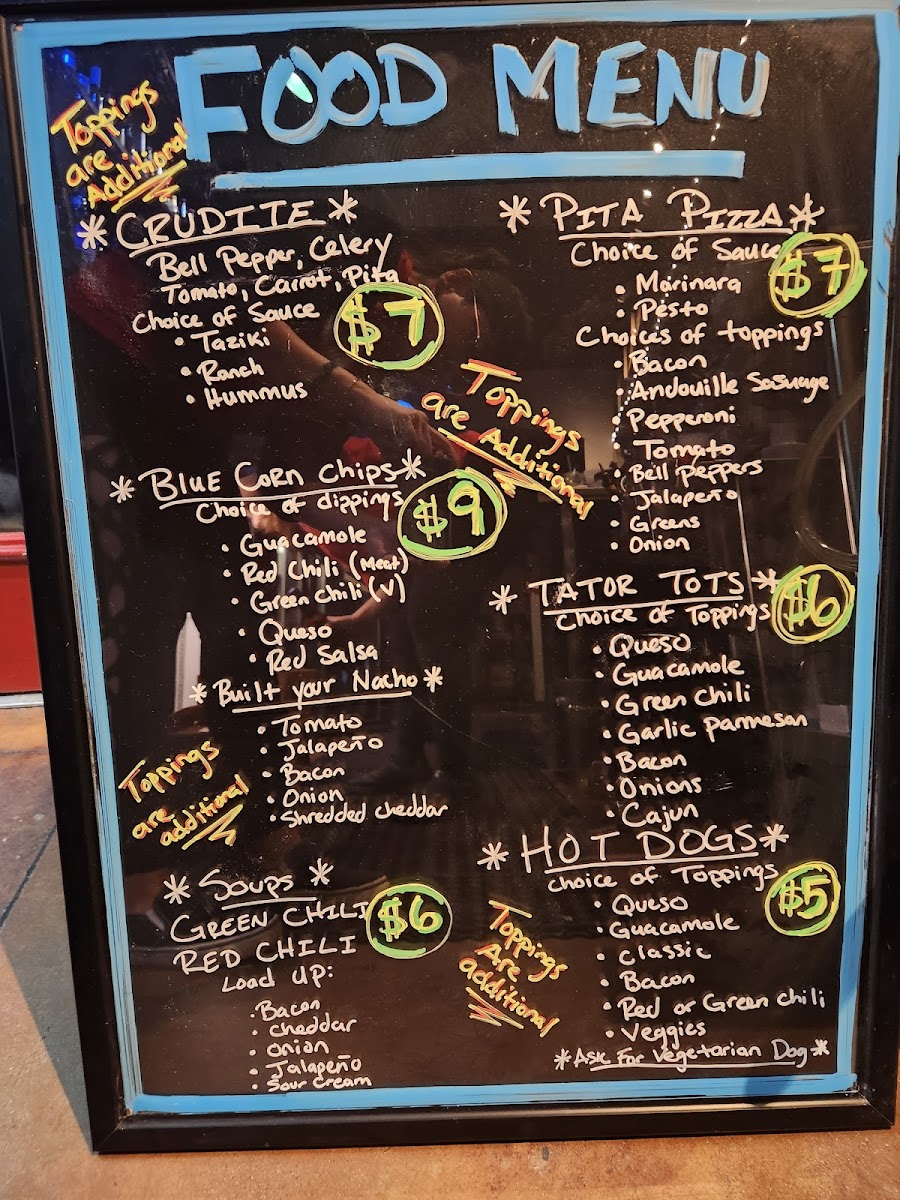 FOOD MENU
Toppings
are
Additional
*CRUDITE*
Bell Pepper, Celery
Tomato, Carrot, Pita
Choice of Sauce
$7
• Taziki
• Ranch
• Hummus
Toppings
are Additional
*BLUE CORN CHIPS*
Choice of dippings
$9
• Guacamole
• Red Chili (Meat)
• Green chili (V)
• Queso
• Red Salsa
*Built your Nacho*
• Tomato
• Jalapeño
• Bacon
• Onion
• Shredded cheddar
Toppings
are
additional
*Soups*
GREEN CHILI
$6
RED CHILI
Load Up:
• Bacon
• Cheddar
• Onion
• Jalapeño
• Sour Cream
*PITA PIZZA*
Choice of Sauce
$7
• Marinara
• Pesto
Choices of toppings
• Bacon
• Andouille Sasuage
• Pepperoni
• Tomato
• Bell Peppers
• Jalapeño
• Greens
• Onion
*TATOR TOTS*
$6
Choice of Toppings
• Queso
• Guacamole
• Green chili
• Garlic parmesan
• Bacon
• Onions
• Cajun
*HOT DOGS*
Choice of Toppings
$5
• Queso
• Guacamole
• Classic
• Bacon
• Red or Green chili
• Veggies
Toppings
Are
additional
*Ask For Vegetarian Dog*